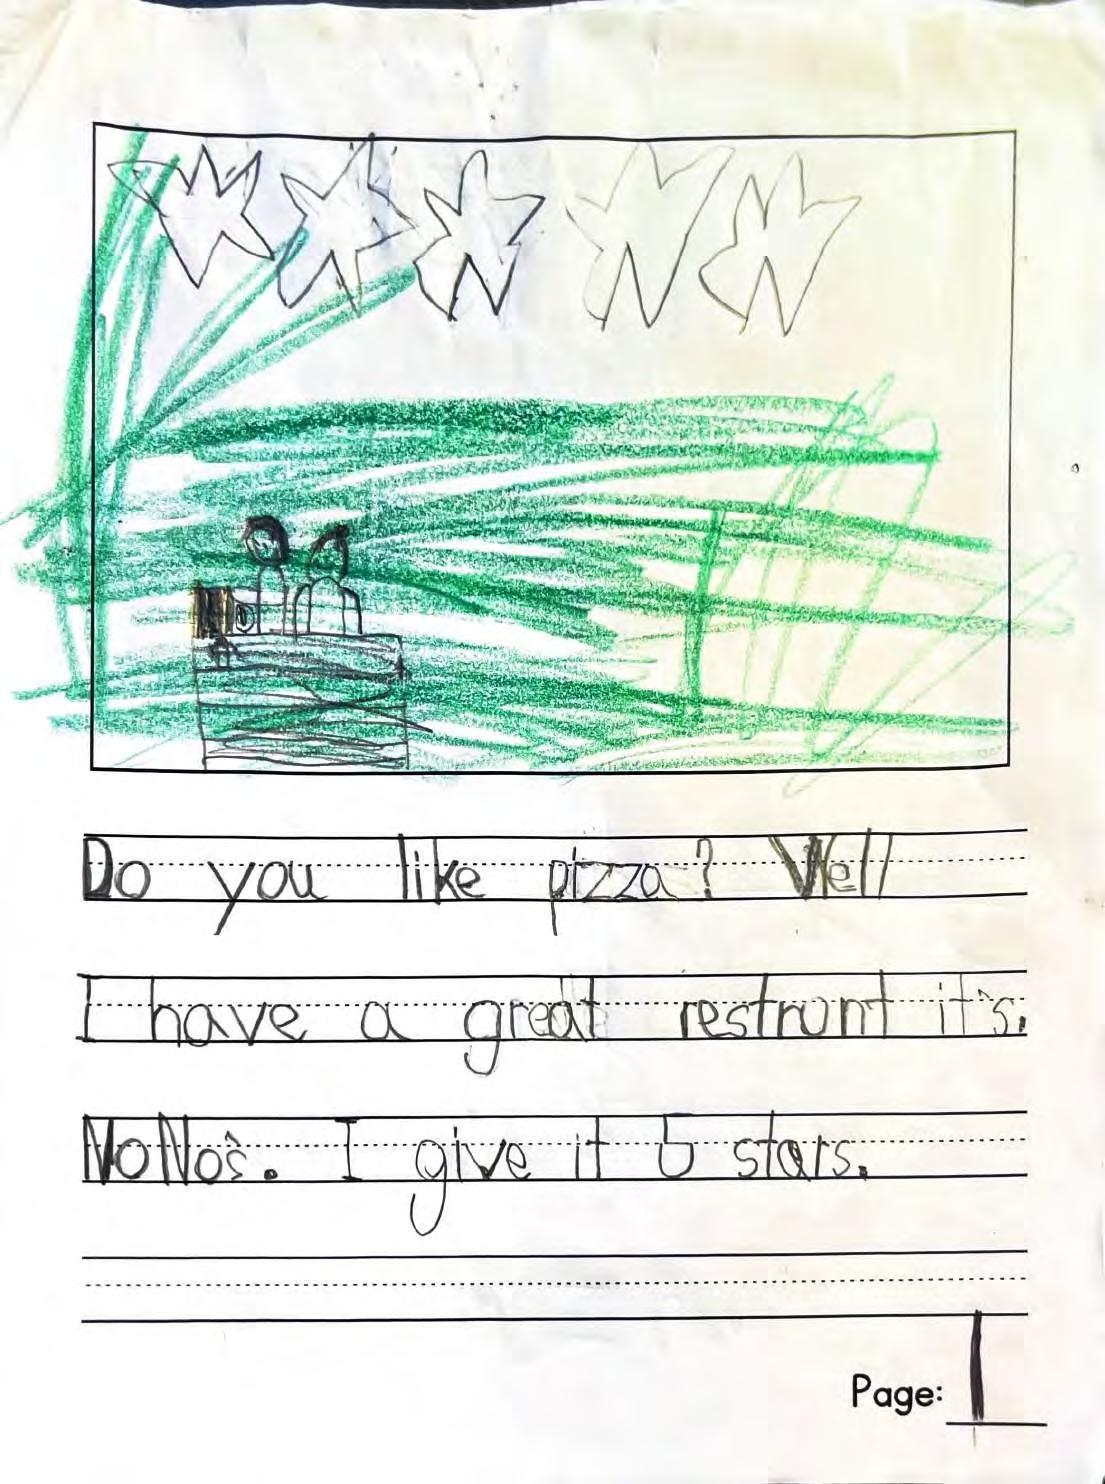 Do you like pizza? Well
I have a great restront it's.
NoNo's. I give it 5 stars.
Page: 1